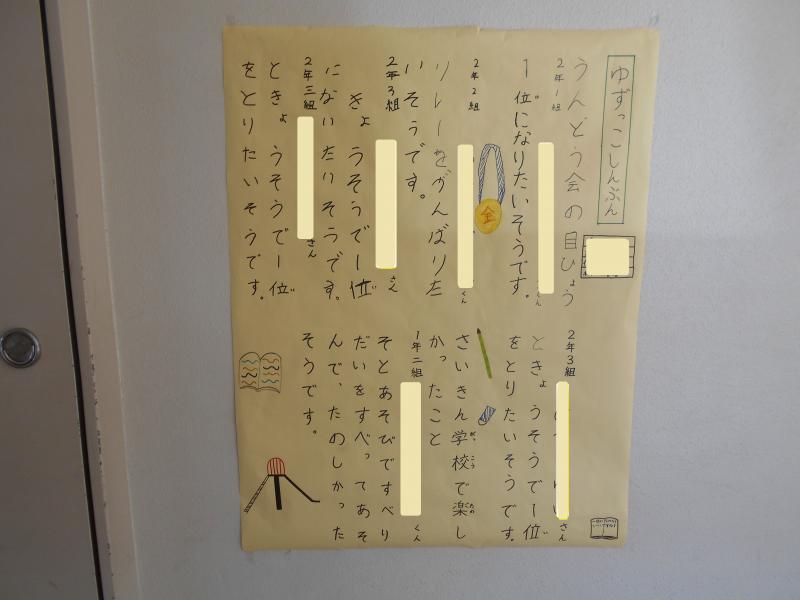 ゆずっこしんぶん
うんどう会の目ひょう
2年1組
1位になりたいそうです。
2年2組 くん
リレーをがんばりた
いそうです。
2年3組 さん
きょうそうで1位
になりたいそうです。
2年三組 さん
ときょうそうで一位
をとりたいそうです。
2年3組 さん
ときょうそうで一位
をとりたいそうです。
さいきん学校で楽し
かったこと
1年二組 くん
そとあそびですべり
だいをすべってあそ
んで、たのしかった
そうです。
金